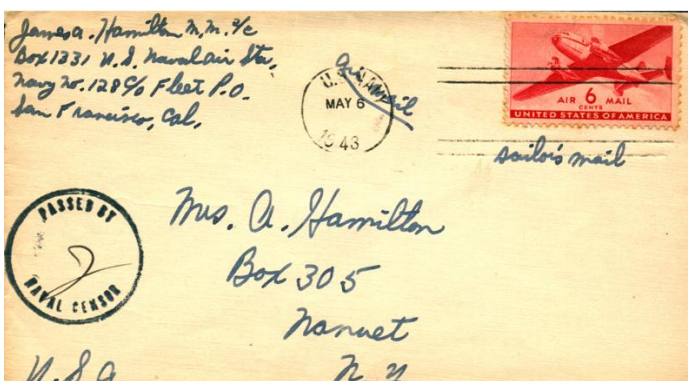 James A. Hamilton M.M. 2/c
Box 1331 U.S. Naval Air Sta,
Navy No. 128 c/o Fleet P.O.
San Francisco, Cal,
Air Mail
U.S. NAVY
MAY 6
1943
AIR 6 MAIL
CENTS
UNITED STATES OF AMERICA
sailor's mail
PASSED BY
NAVAL CENSOR
Mrs. A. Hamilton
Box 305
Nanuet
N. Y.
U.S.A.